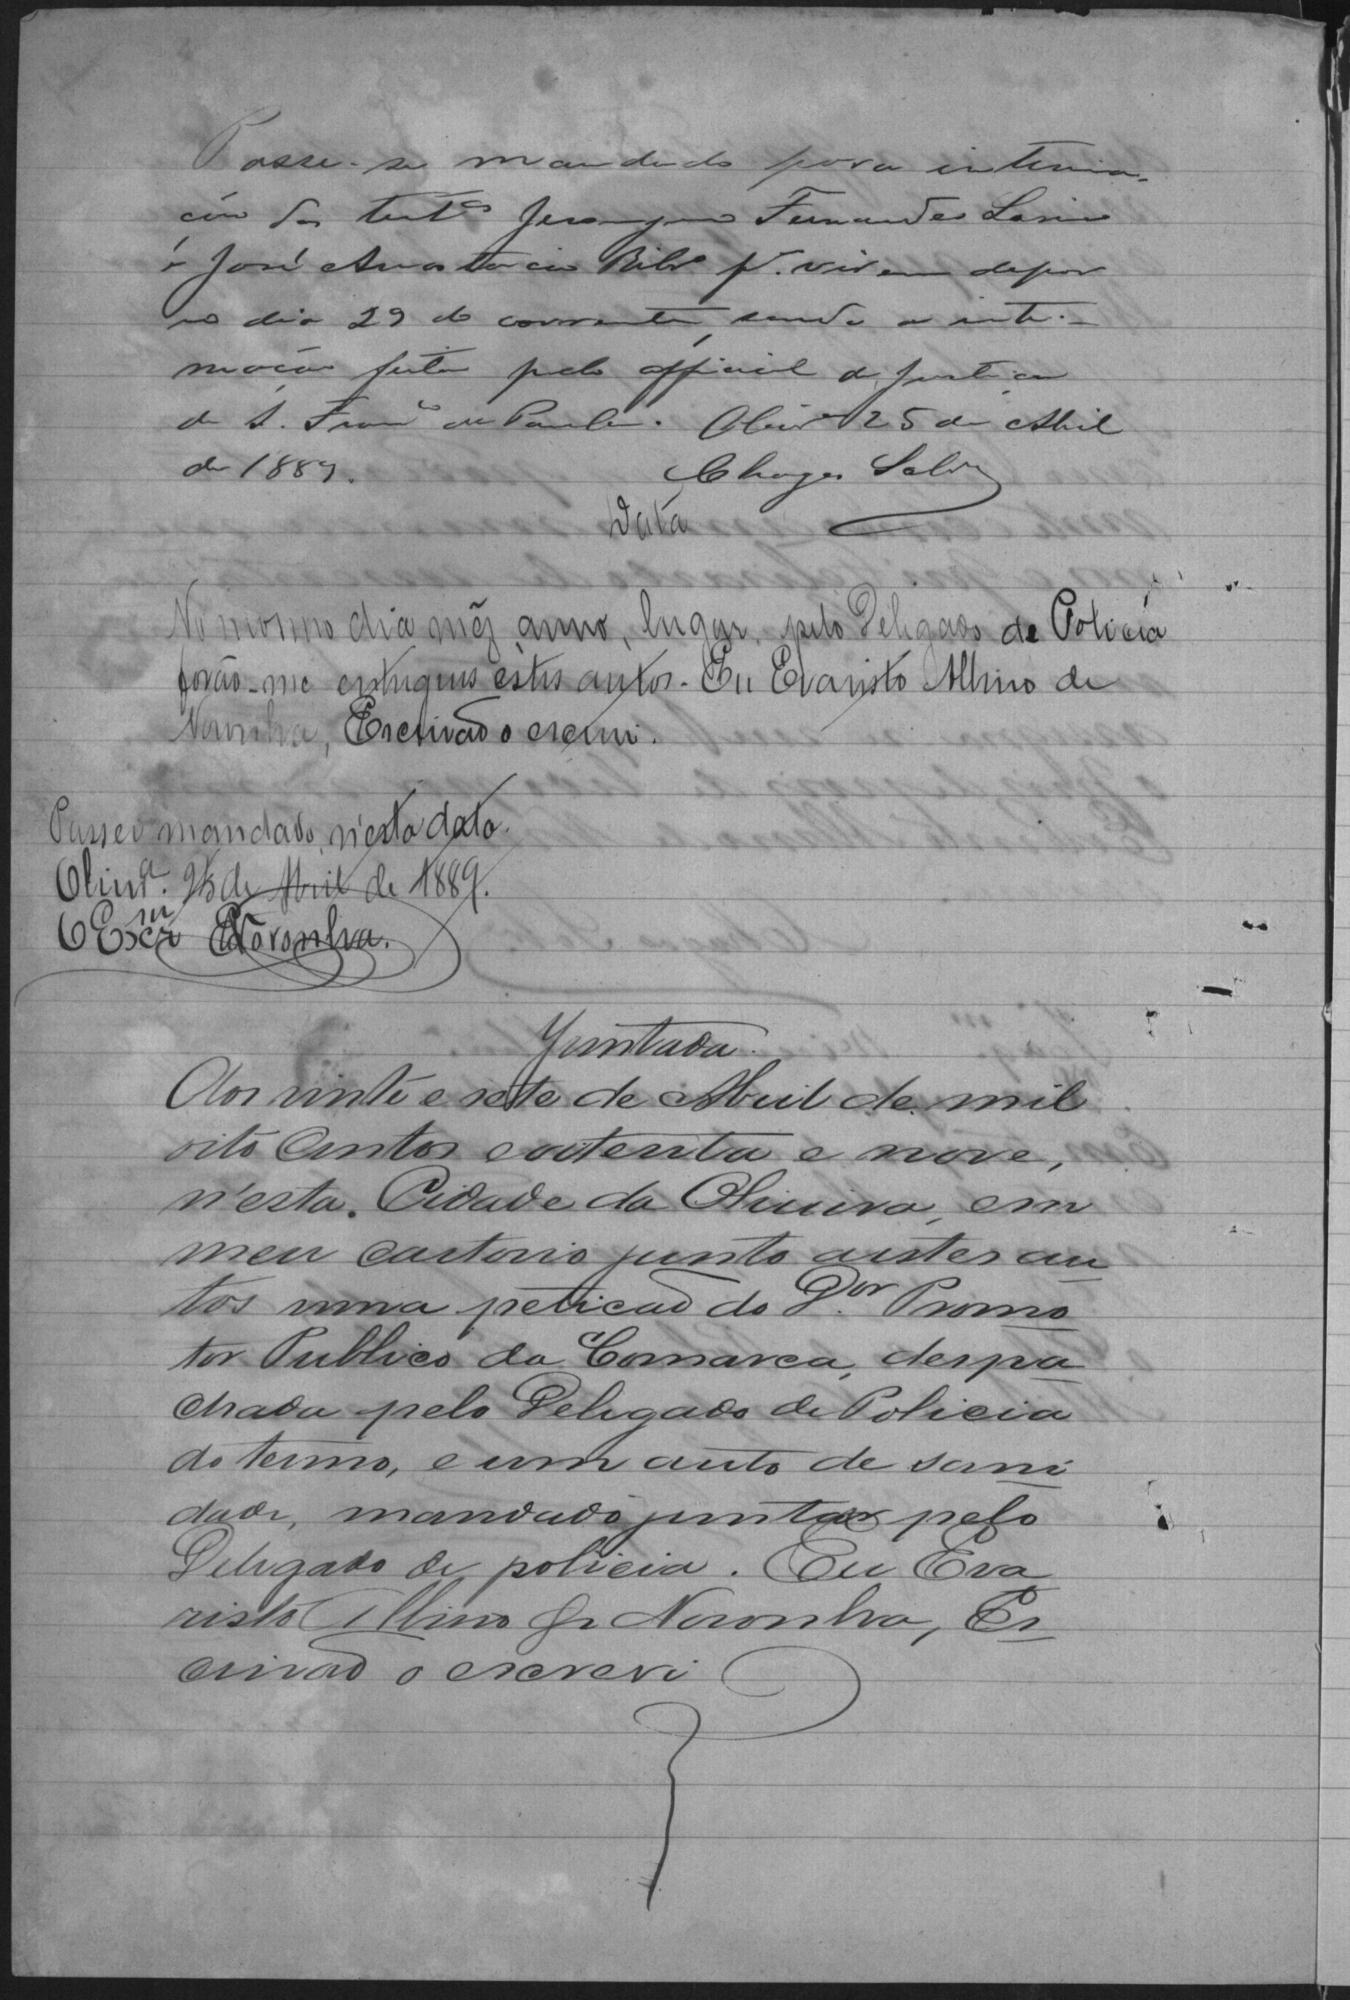 Passe-se mandado para intima-
ção das test.as Jeronymo Fernandes
e José Anastacio Ribr.o p.a virem depor
no dia 29 do corrente, sendo a inti-
mação feita pelo official de justiça
de S. Fran.co de Paula. Olivr.a 25 de Abril
de 1889. Chagas
Data
No mesmo dia mêz, anno, lugar, pelo Delegado de Policia
forão-me entregues estes autos. Eu Evaristo Albino de
Noronha, Escrivão o escrevi.
Passei mandado, n'esta data.
Olivr.a. 25 de Abril de 1889.
O Escr.m Noronha.
Juntada.
Aos vinte e sete de Abril de mil
oito centos e oitenta e nove,
n'esta Cidade da Oliveira, em
meu cartorio junto a estes au
tos uma petição do D.or Promo
tor Publico da Comarca, despa
chada pelo Delegado de Policia
do termo, e um auto de sani
dade, mandado juntar pelo
Delegado de policia. Eu Eva
risto Albino de Noronha, Es
crivão o escrevi